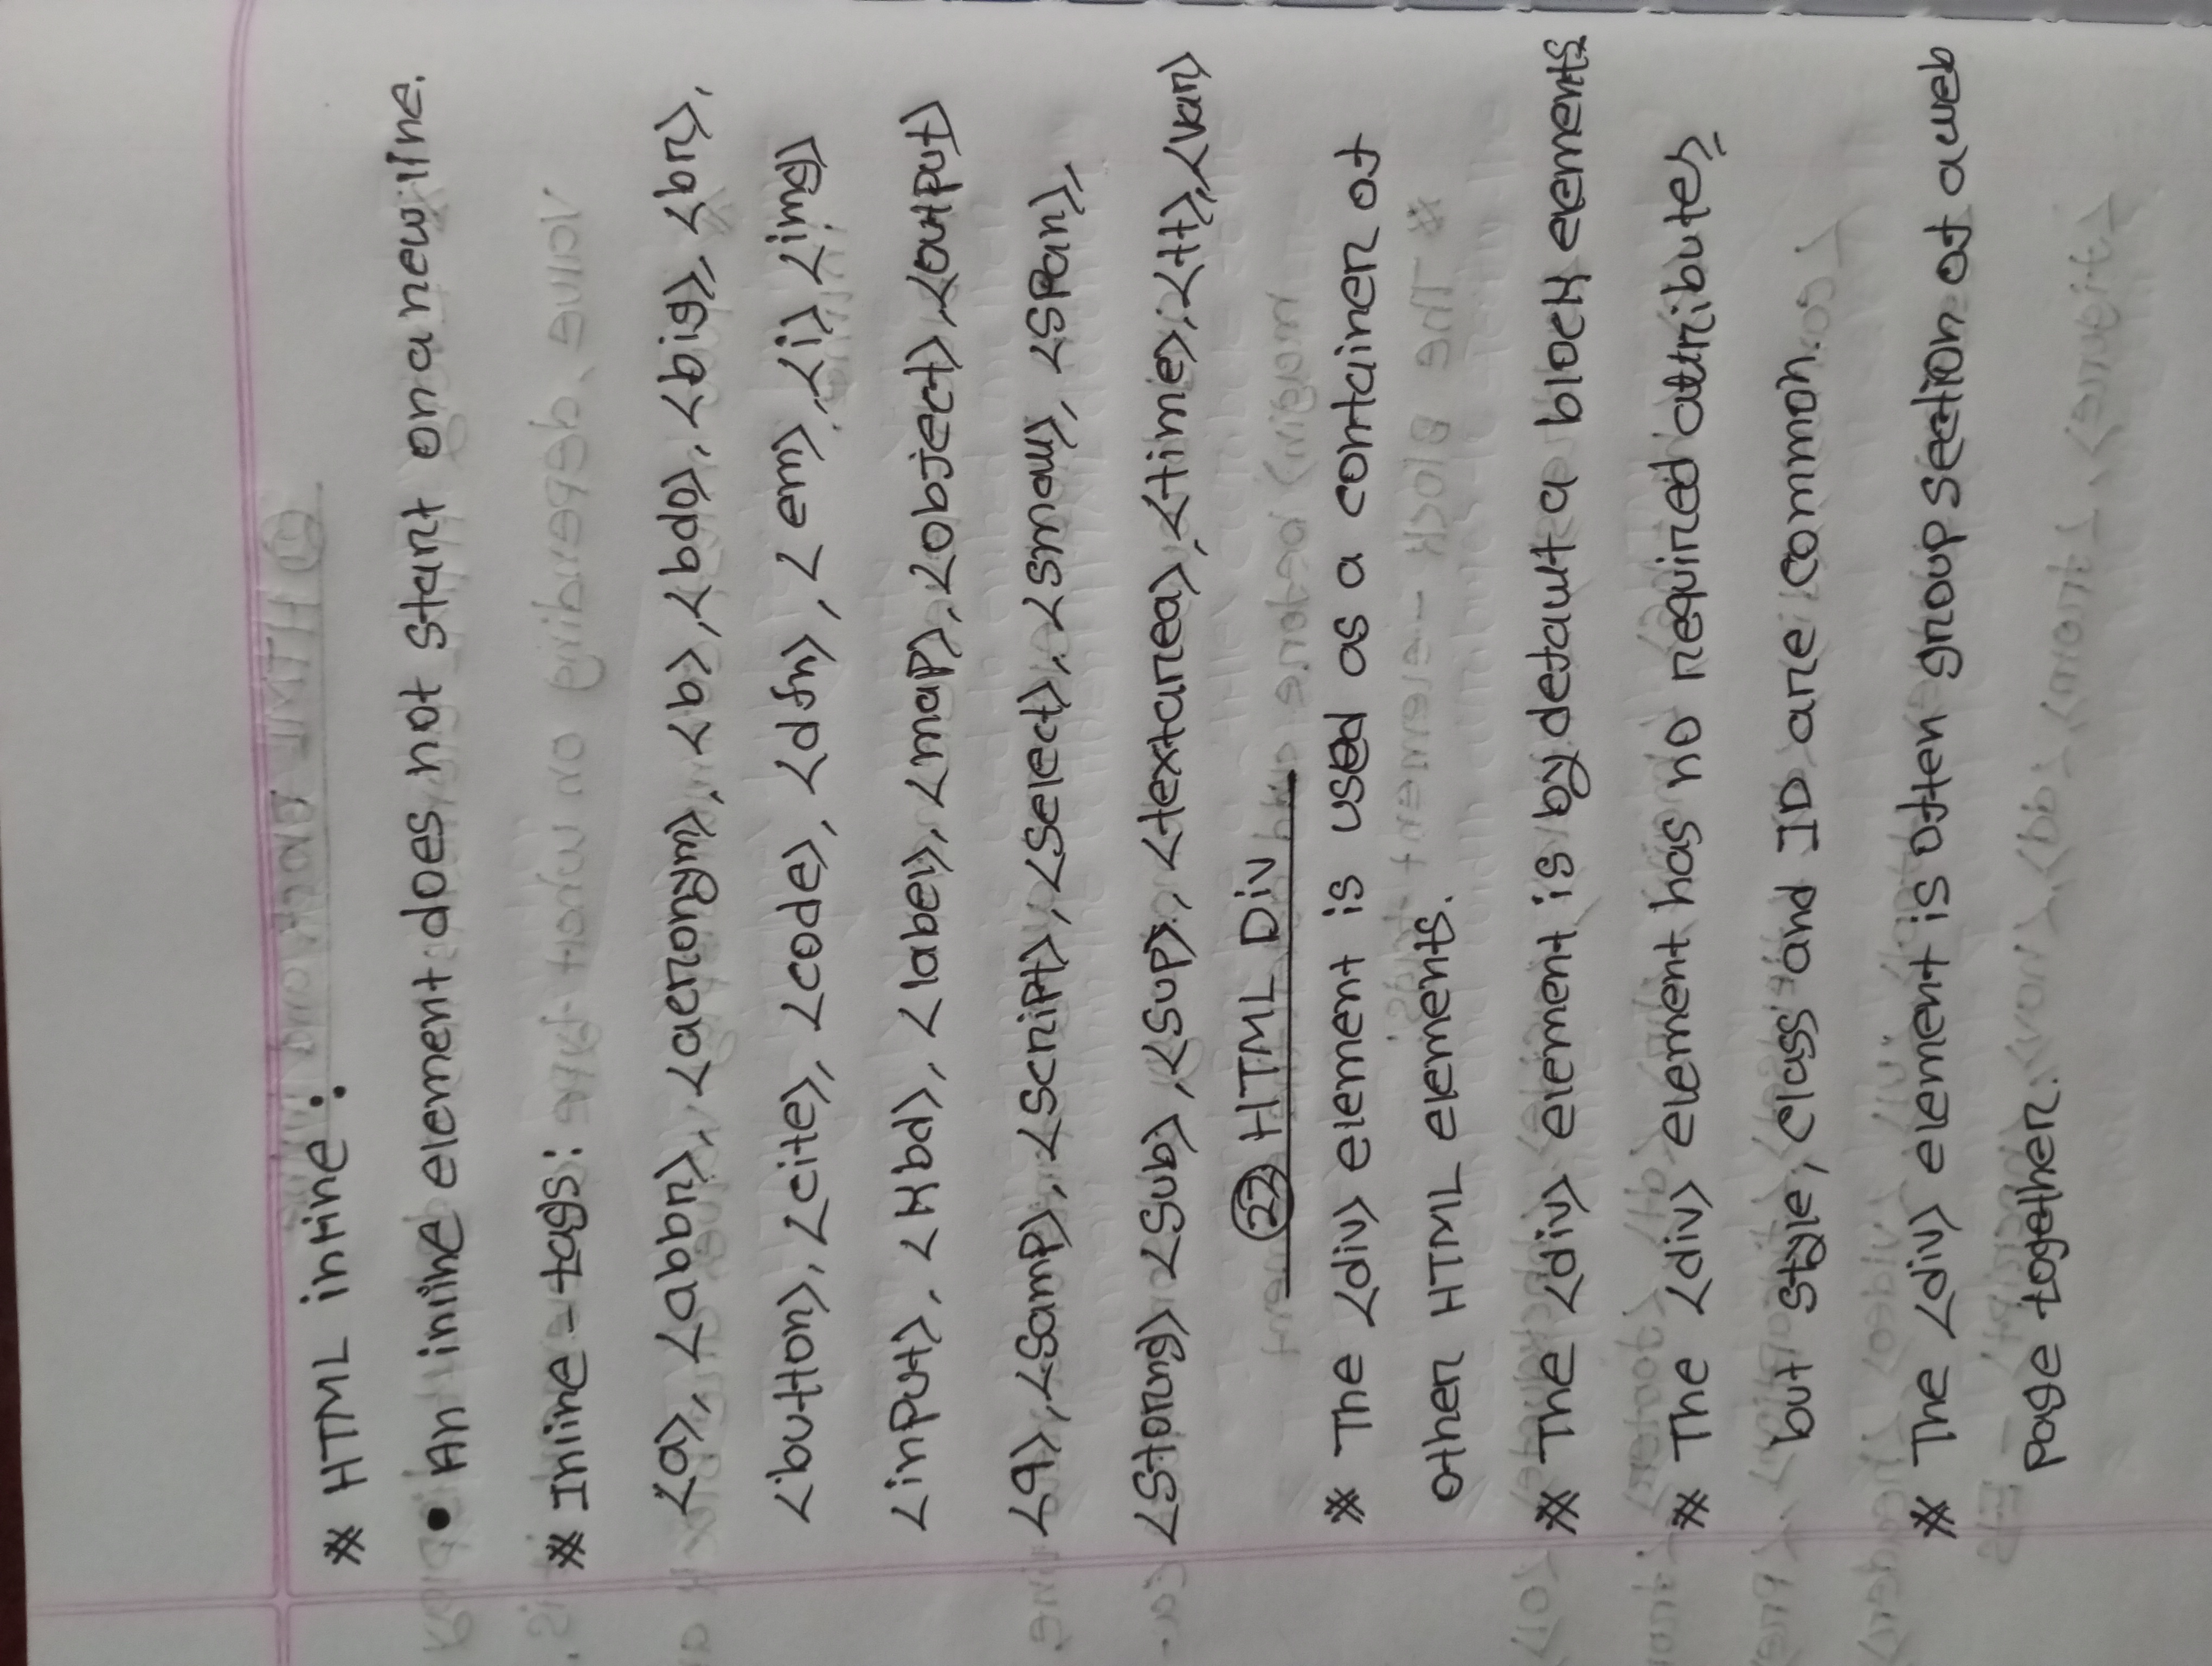 * HTML inline :
• An inline element does not start on a new line.
* Inline - tags:
<a>, <abbr>, <acronym>, <b>, <bdo>, <big>, <br>,
<button>, <cite>, <code>, <dfn>, <em>, <i> <img>
<input>, <kbd>, <label>, <map>, <object>, <output>
<q>, <samp>, <script>, <select>, <small>, <span>,
<storng> <sub>, <sup>, <textarea>, <time>, <tt>, <var>
22 HTML Div
* The <div> element is used as a container of
other HTML elements.
* The <div> element is by default a block elements
* The <div> element has no required attributes,
but style, class and ID are common.
* The <div> element is often group section of a web
page together.